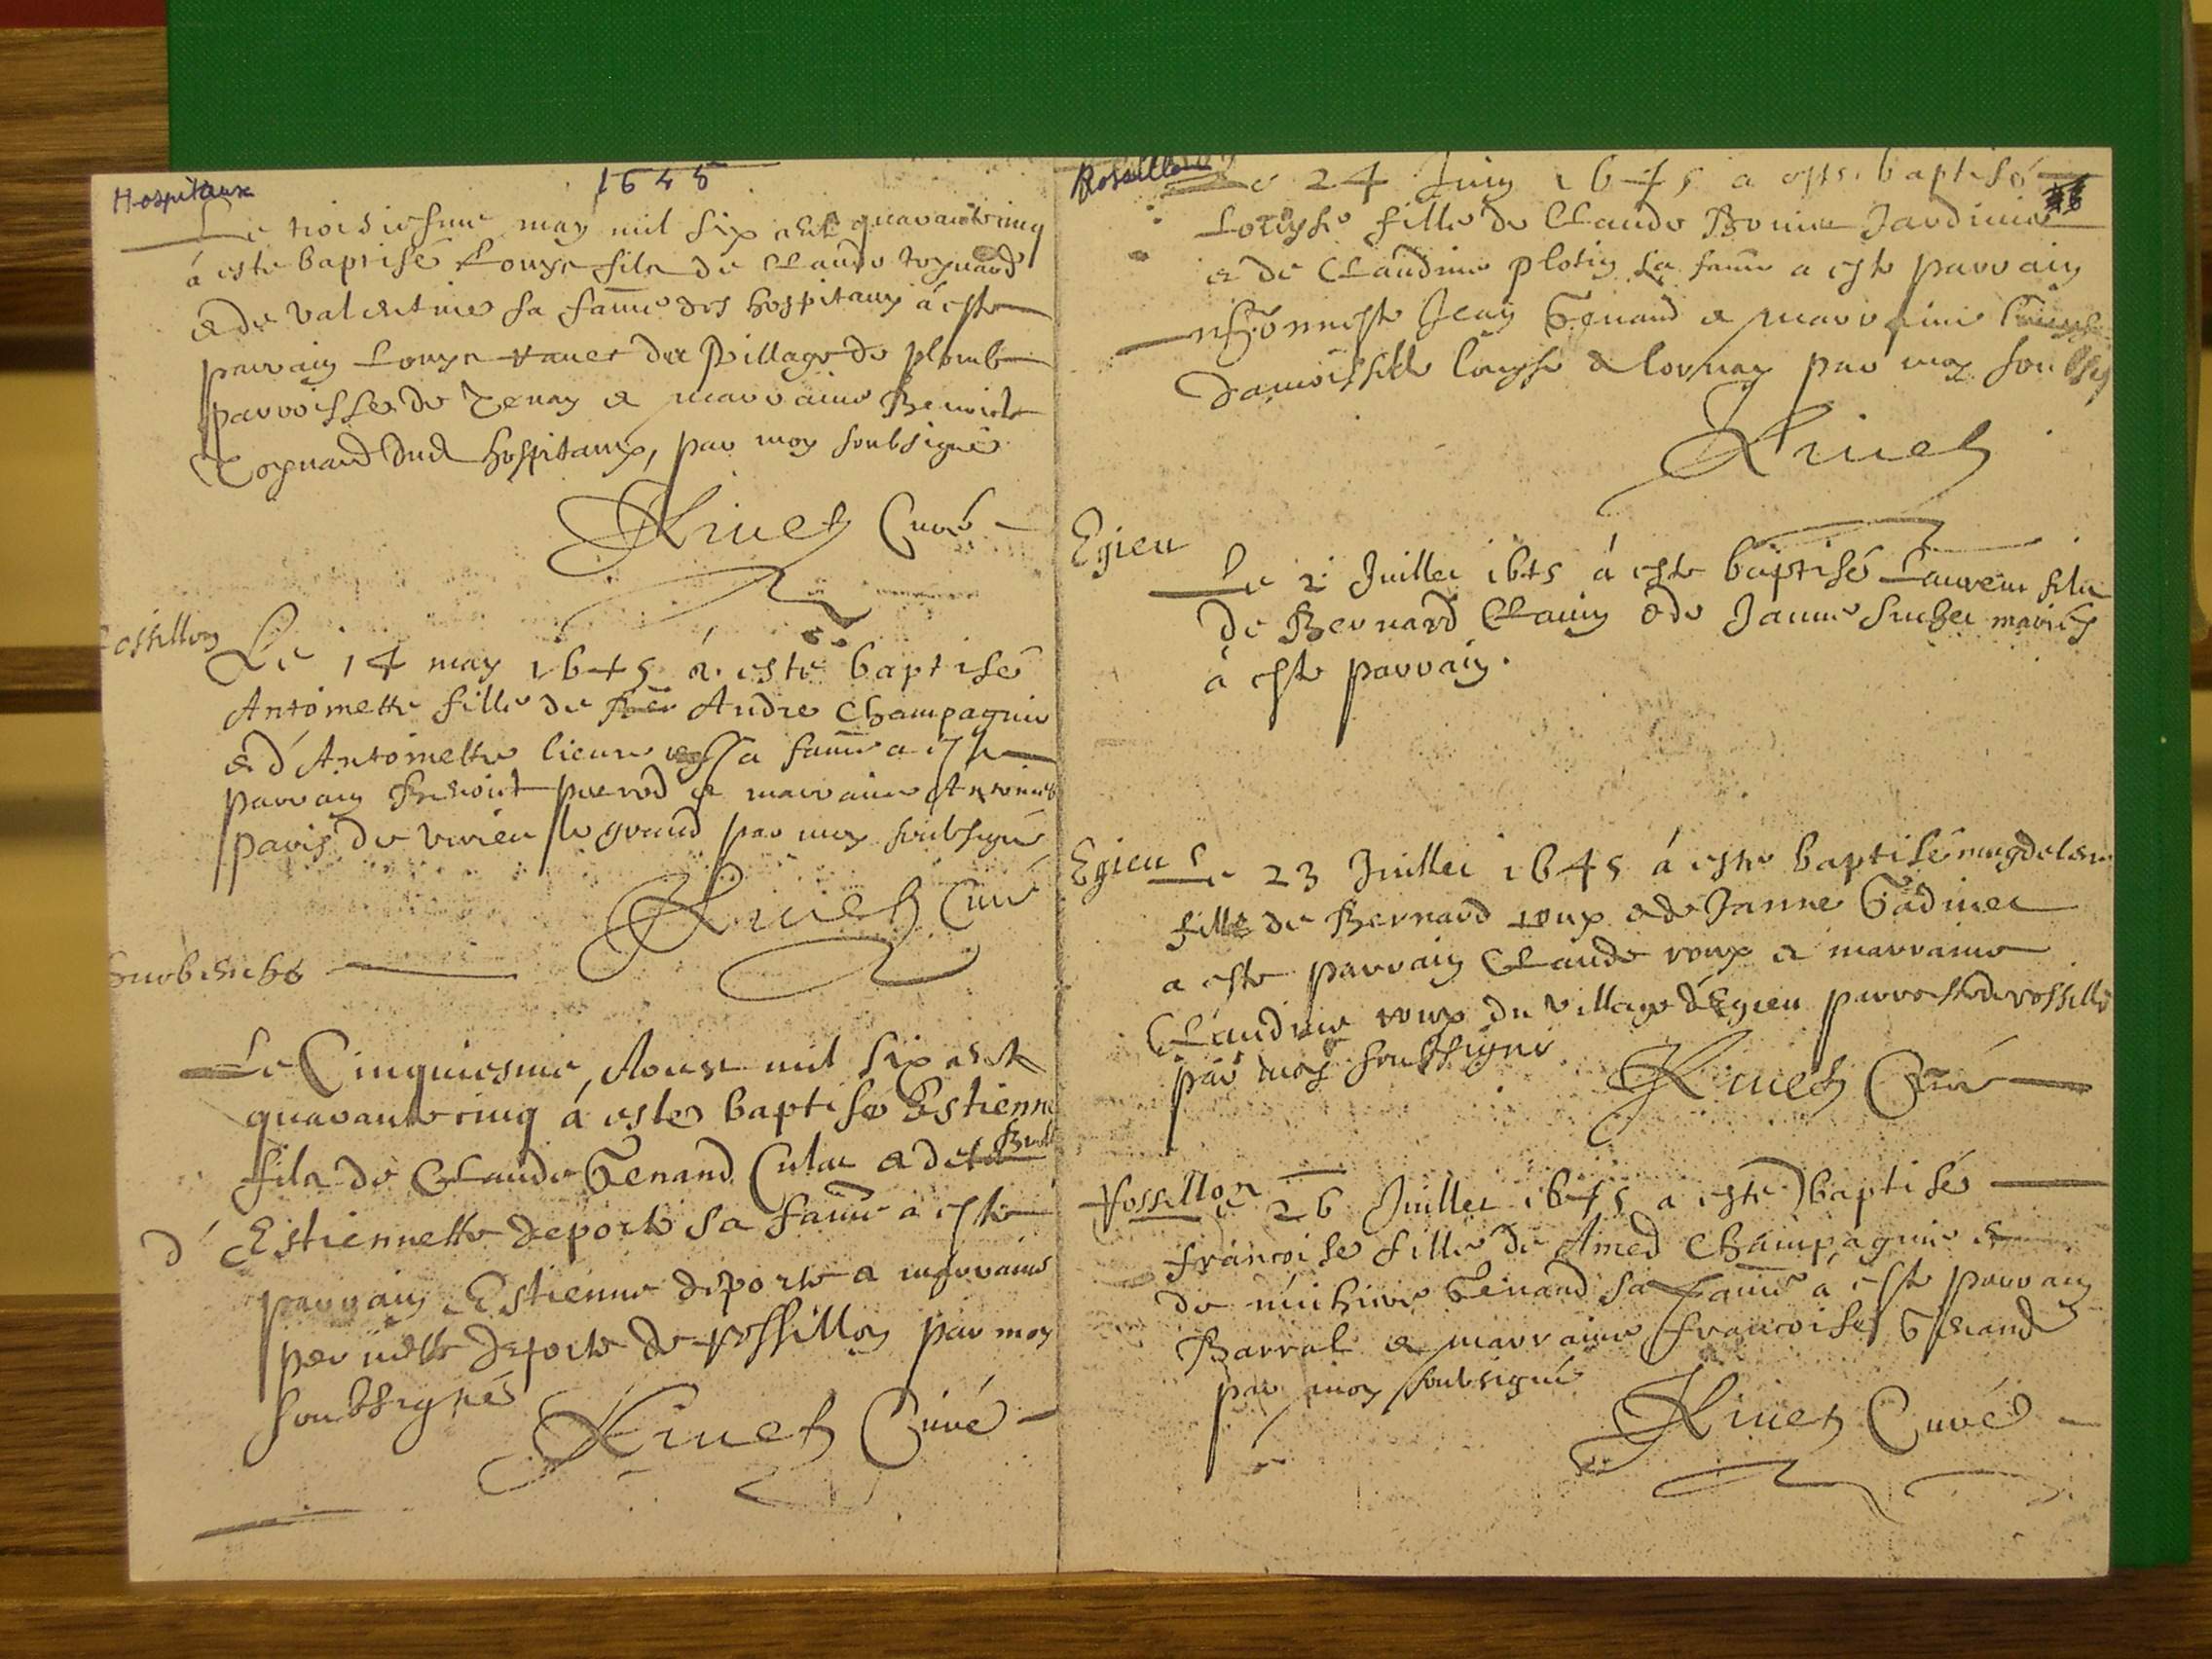 Hospitaux
1645
Le troisiesme may mil six cent quarantecinq
à esté baptisé Louys fils de Claude Toguard
& de Valentine sa fame des hospitaux à esté
parrain Louys du Village de plomb
parroisse de Tenay & marraine Benoite
Toguard dud hospitaux, par moy soubsigné
Rivet Curé
Rossillon
Le 14 may 1645 à esté baptisé
Antoinette fille de André Champagnie
& d'Antoinette sa fame a esté
parrain Benoict & marraine Antoine
paris de virieu le grand par moy soubsigné
Rivet Curé
Le Cinquiesme Aoust mil six cent
quarantecinq à esté baptisé Estienne
fils de Claude Genand Culat & de
d' Estiennette deporte sa fame à esté
parrain Estienne deporte & marraine
pernette deporte de rossillon par moy
soubsigné
Rivet Curé
Rossillon
Le 24 Juin 1645 a esté baptisé
Louyse fille de Claude Jardinier
& de Claudine plotin sa fame a esté parrain
honneste Jean Genand & marraine
damoiselle louyse de lornay par moy soubsig
Rivet
Egieu
Le 2 Juillet 1645 à esté baptisé Laurent fils
de Bernard Clauin & de Janne Suchet mariés
à esté parrain.
Egieu Le 23 Juillet 1645 à esté baptisé magdelene
fille de Bernard roux & de Janne Gadinet
a esté parrain Claude roux & marraine
Claudine roux du village d'Egieu parroisse de rossillo
par moy soubsigné
Rivet Curé
Rossillon
Le 26 Juillet 1645 a esté baptisé
francoise fille de Amed Champagnie &
de Genand sa fame a esté parrain
Barral & marraine francoise Genand
par moy soubsigné
Rivet Curé